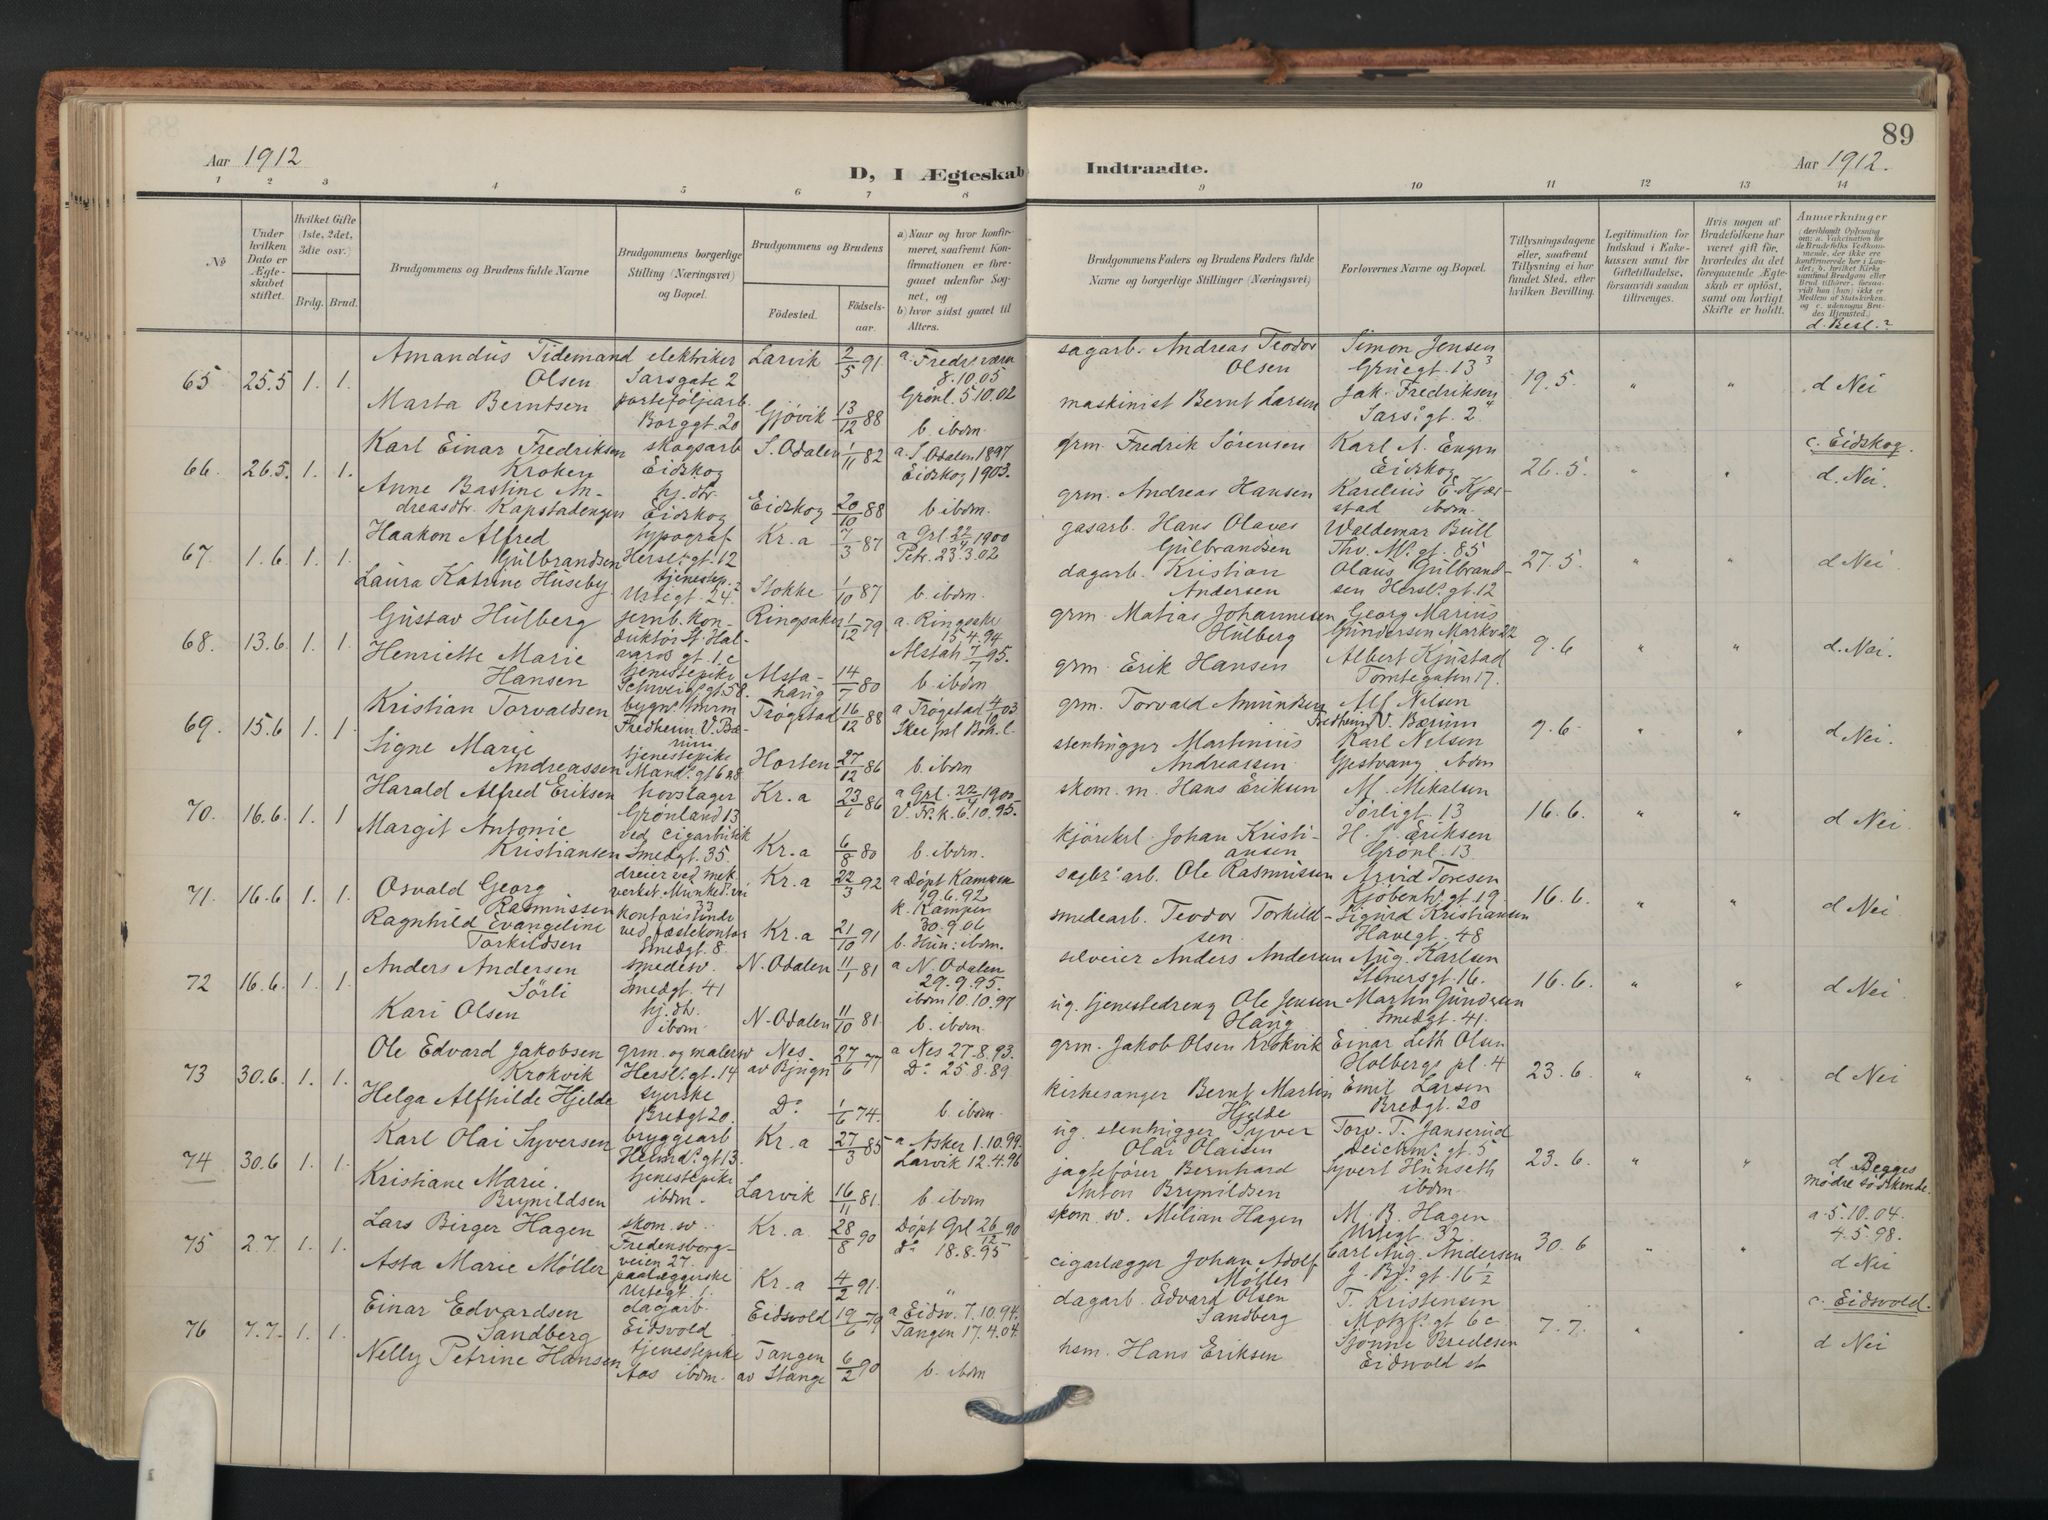 89
Aar 1912
Aar 1912.
D, I Ægteskab Indtraadte.
1 2 3 4 5 6 7 8 9 10 11 12 13 14
No
Under hvilken Dato er Ægteskabet stiftet.
Hvilket Gifte (1ste, 2det, 3die osv.)
Brdg. Brud.
Brudgommens og Brudens fulde Navne
Brudgommens borgerlige Stilling (Næringsvei) og Bopæl.
Brudgommens og Brudens
Födested. Födselsaar.
a) Naar og hvor konfirmeret, saafremt Konfirmationen er foregaaet udenfor Sognet, og
b) hvor sidst gaaet til Alters.
Brudgommens Faders og Brudens Faders fulde Navne og borgerlige Stillinger (Næringsvei)
Forlovernes Navne og Bopæl.
Tillysningsdagene eller, saafremt Tillysning ei har fundet Sted, efter hvilken Bevilling.
Legitimation for Indskud i Enkekassen samt for Giftetilladelse, forsaavidt saadan tiltrænges.
Hvis nogen af Brudefolkene har været gift för, hvorledes da det foregaaende Ægteskab er oplöst, samt om lovligt Skifte er holdt.
Anmærkninger
(deriblandt Oplysning om: a. Vakcination for de Brudefolks Vedkommende, der ikke ere konfirmerede her i Landet; b. hvilket Kirkesamfund Brudgom eller Brud tilhörer, forsaavidt han (hun) ikke er Medlem af Statskirken, og c. udensogns Brudes Hjemsted.
d. Besl.?
65 25.5 1. 1.
Amandus Tidemand Olsen
elektriker Sarsgate 2
Larvik 2/5 91
a. Fredrsværn 8.10.05
Grønl. 5.10.02
sagarb. Andreas Teodor Olsen
Simon Jensen Gruegt. 13
19.5. " "
d Nei
Marta Berntsen
porteføljearb. Borggt. 20
Gjøvik 13/12 88
b. ibdm.
maskinist Bernt Larsen
Jak. Fredriksen Sarsgt. 2
66. 26.5. 1. 1.
Karl Einar Fredriksen Kroken
skogsarb Eidskog
S. Odalen 1/11 82
a. S. Odalen 1897
Eidskog 1903.
grm. Fredrik Sørensen
Karl A. Engen Eidskog
26.5. " "
c. Eidskog.
d. Nei.
Anne Bastine Andreasdtr. Kapstadengen
hj. dtr. Eidskog
Eidskog 20/10 88
b. ibdm.
grm. Andreas Hansen
Karelius E. Kjærstad ibdm.
67. 1.6. 1. 1.
Haakon Alfred Gulbrandsen
typograf Hersl. gt. 12
Kr.a 7/3 87
a Grl. 22/4 1900
Petr. 23.3.02
gasarb. Hans Olaves Gulbrandsen
Waldemar Bull Thv. M. gt. 85
27.5. " "
d Nei
Laura Katrine Huseby
tjenestep. Urtegt. 24
Stokke 1/10 87
b. ibdm.
dagarb. Kristian Andersen
Olaus Gulbrandsen Hersl. gt. 12
68. 13.6 1. 1.
Gustav Hulberg
semb. konduktør St. Halvards gt. 1.c
Ringsaker 1/12 79
a. Ringsaker 15.4.94
Alstah 7/7 95.
grm. Matias Johannesen Hulberg
Georg Marius Gundersen Markv. 22
9.6 " "
d. Nei.
Henriette Marie Hansen
tjenestepike Schweigs gt. 58.
Alstahaug 14/7 80
b. ibdm
grm. Erik Hansen
Albert Kjustad Tomtegaten 17.
69. 15.6 1. 1.
Kristian Torvaldsen
Fredheim V. Bærum
Trøgstad 16/12 88
a Trøgstad 4/10 03
grm. Torvald Amundsen
Alf Nilsen Fredheim V. Bærum
9.6. " "
d Nei.
Signe Marie Andreassen
tjenestepike Mands. gt 62
Horten 27/12 86
b. ibdm
stenhugger Martinius Andreassen
Karl Nilsen Gjestvang ibdm
70. 16.6. 1. 1
Harald Alfred Eriksen
hovslager Grønland 13
Kr.a 23/1 86
a Grl. 22/4 1900
V. Fr. k. 6.10.95.
skom. m. Hans Eriksen
M. Mikalsen Sørligt. 13
16.6. " "
d Nei.
Margit Antonie Kristiansen
ved cigarbutikk Smedgt. 35.
Kr.a 6/8 80
b. ibdm.
kjørekrl Johan Kristiansen
H. J. Eriksen Grønl. 13
71. 16.6 1. 1.
Osvald Georg Rasmussen
dreier ved mek verkst. Munked. vei 33
Kr.a 22/3 92
a Døpt Kampen 19.6.92
k. Kampen 30.9.06
arb. Ole Rasmussen
Arvid Toresen Kjøbenhv. gt. 19
16.6. " "
d Nei
Ragnhild Evangeline Torkildsen
kontoristinde ved fæstekontor Smedgt. 8.
Kr.a 21/10 91
b. Hun: ibdm.
smedearb. Teodor Torkildsen.
Sigurd Kristiansen Havegt. 48
72 16.6. 1. 1.
Anders Andersen Sörli
smedesv. Smedgt. 41
N. Odalen 11/1 81
a N. Odalen 29.9.95.
ibdm 10.10.97
selveier Anders Andersen
Aug. Karlsen Stenersgt. 16.
16.6. " "
d Nei.
Kari Olsen
hj. dtr. ibdm.
N. Odalen 11/10 81.
b. ibdm.
ug. tjenestedreng Ole Jensen Haug
Martin Gundersen Smedgt. 41.
73 30.6. 1. 1.
Ole Edvard Jakobsen Krokvik
grm. og malersv Hersl. gt. 14
Nes av Bjugn 27/6 77
a Nes 27.8.93.
Do 25.8.89.
grm. Jakob Olsen Krokvik
Einar Leth Olsen Holbergs pl. 4
23.6. " "
d Nei
Helga Alfhilde Hjelde
syerske Bredgt 20.
Do 1/6 74.
b. ibdm.
kirkesanger Bernt Martin Hjelde
Emil Larsen Bredgt. 20
74 30.6 1. 1.
Karl Olai Syversen
bryggearb Helmds. gt 13.
Kr.a 27/3 85
a. Asker 1.10.99.
Larvik 12.4.96
ug. stenhugger Syver Olai Olaisen
Torv. T. Janserud Deichm. gt. 5
23.6. " "
d Begges mødre södskende.
Kristiane Marie. Brynildsen
tjenestepike ibdm.
Larvik 16/11 81
b. ibdm
jagtefører Bernhard Anton Brynildsen
Syvert Hunseth ibdm.
75 2.7. 1. 1.
Lars Birger Hagen
skom. sv. Fredensborgveien 27.
Kr.a 28/8 90
Døpt Grl 26/12 90
do 18.8.95
skom. sv. Milian Hagen
M. B. Hagen Urtegt. 32.
30.6 " "
a. 5.10.04.
4.5.98.
d Nei
Asta Marie Møller
paalæggerske Urtegt. 1.
Kr.a 4/2 91.
"
cigarlægger Johan Adolf Møller
Carl Aug. Andersen J. Bjs. gt. 16 1/2
76 7.7. 1. 1.
Einar Edvardsen Sandberg
dagarb. Eidsvold
Eidsvold 19/6 79
a Eidsv. 7.10.94.
Tangen 17.4.04.
dagarb. Edvard Olsen Sandberg
T. Kristensen Motzf. gt 6c
7.7. " "
c. Eidsvold.
d Nei
Nelly Petrine Hansen
tjenestepike Aas ibdm.
Tangen av Stange 6/2 90
b. ibdm
hsm. Hans Eriksen
Sjønne Bredesen Eidsvold st